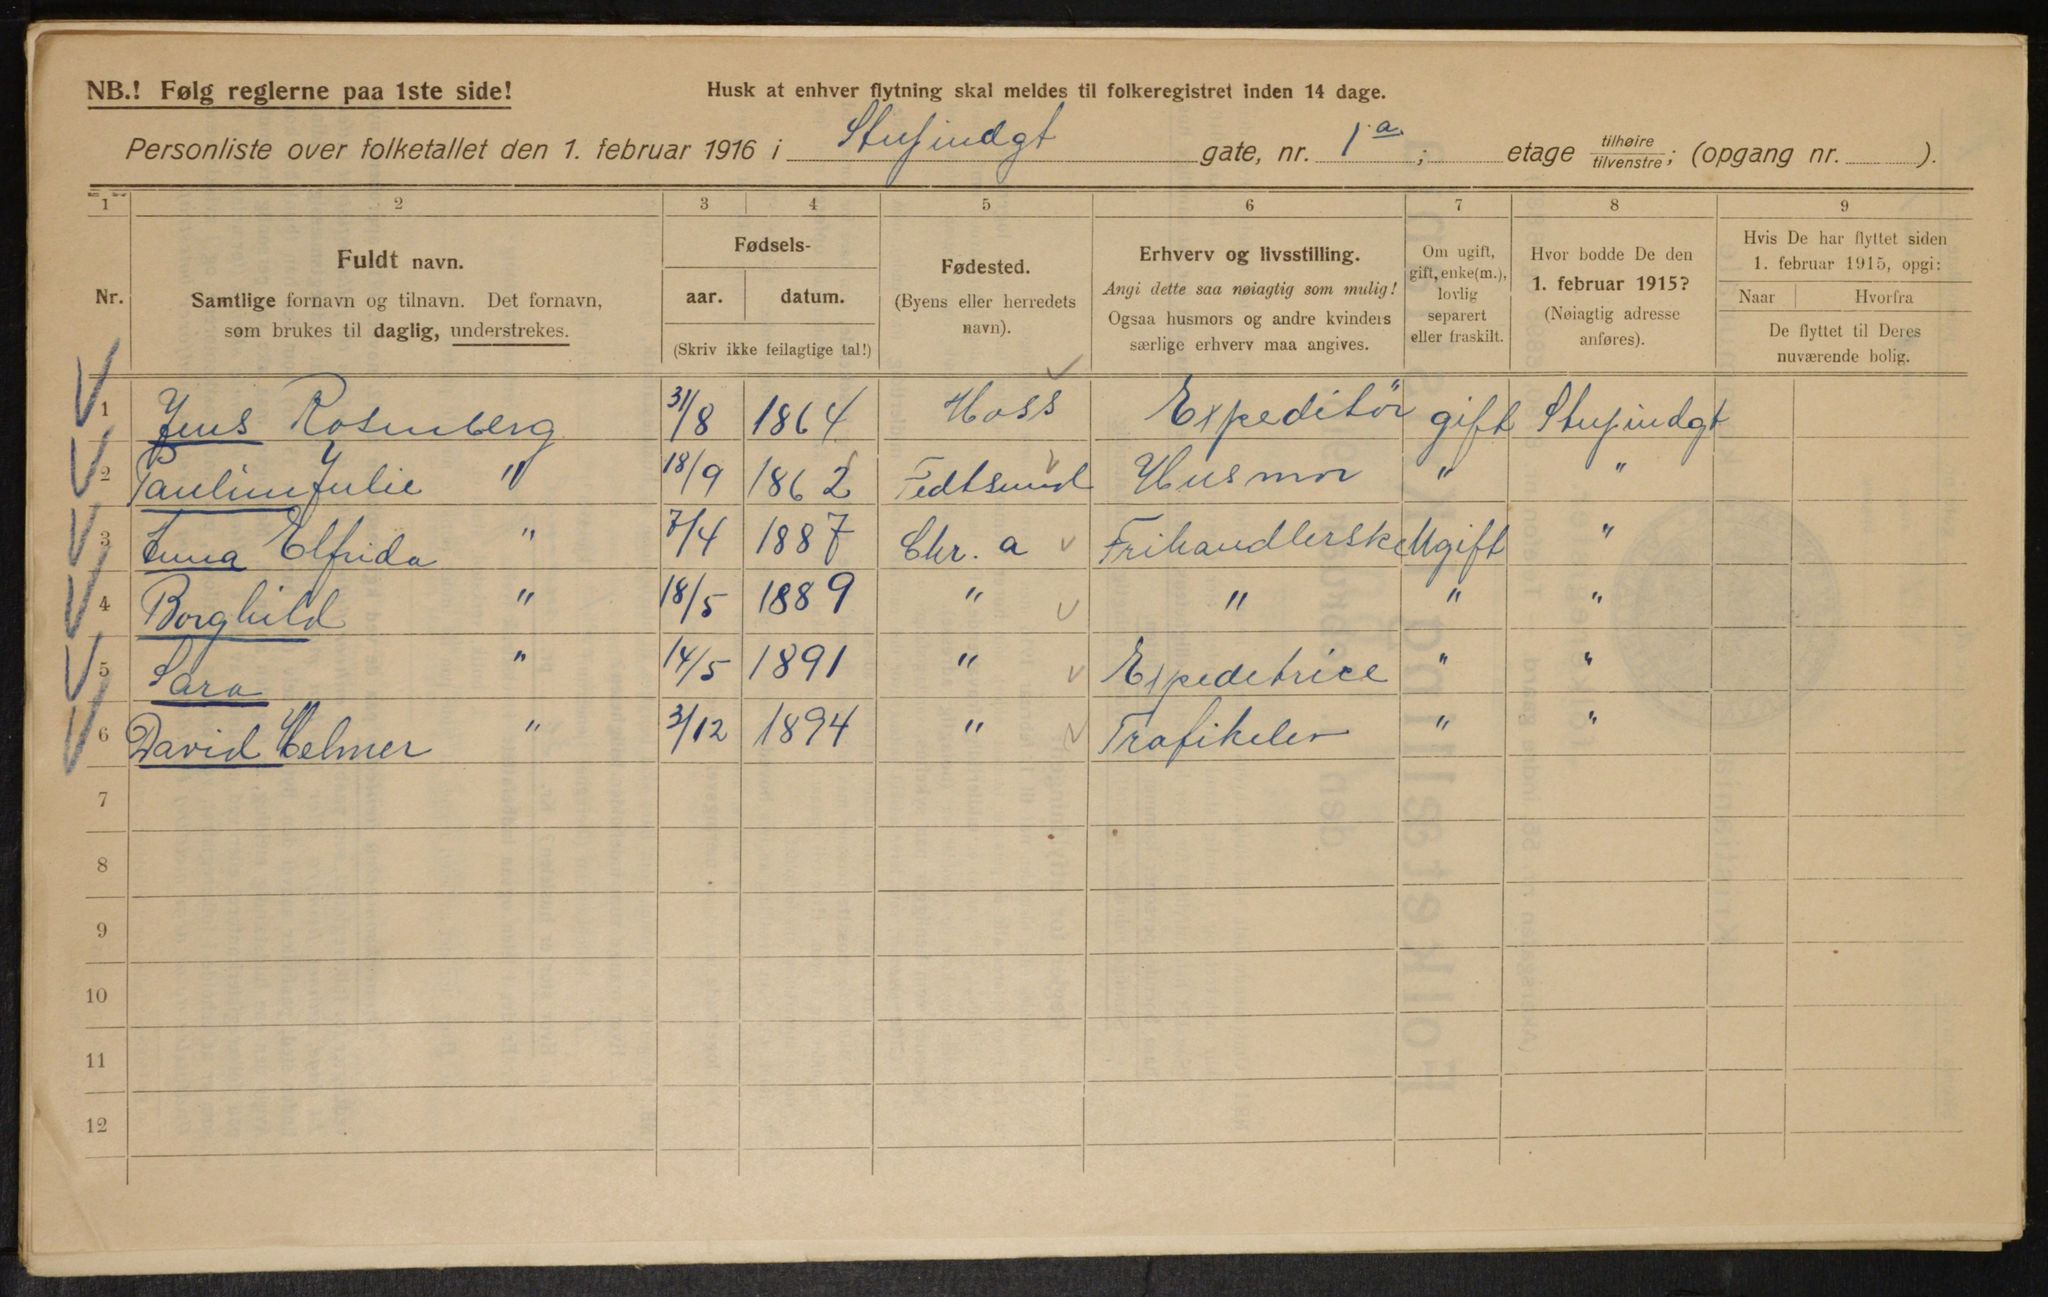 NB.! Følg reglerne paa 1ste side!
Husk at enhver flytning skal meldes til folkeregistret inden 14 dage.
Personliste over folketallet den 1. februar 1916 i Stupindgt gate, nr. 1a; etage tilhøire/tilvenstre; (opgang nr. ).
1 2 3 4 5 6 7 8 9
Nr.
Fuldt navn.
Samtlige fornavn og tilnavn. Det fornavn,
som brukes til daglig, understrekes.
Fødsels-
aar. datum.
(Skriv ikke feilagtige tal!)
Fødested.
(Byens eller herredets
navn).
Erhverv og livsstilling.
Angi dette saa nøiagtig som mulig!
Ogsaa husmors og andre kvinders
særlige erhverv maa angives.
Om ugift,
gift, enke(m.),
lovlig
separert
eller fraskilt.
Hvor bodde De den
1. februar 1915?
(Nøiagtig adresse
anføres).
Hvis De har flyttet siden
1. februar 1915, opgi:
Naar Hvorfra
De flyttet til Deres
nuværende bolig.
1 Jens Rosenberg 31/8 1864 Hoss Expeditör gift Stupindgt
2 Pauline Julie " 18/9 1862 Fedtsund Husmor " "
3 Anna Elfrida " 7/4 1887 Chr. a Frihandlerske Ugift "
4 Borghild " 18/5 1889 " " " "
5 Sara " 14/5 1891 " Expeditrice " "
6 David Helmer " 3/12 1894 " Trafikelev " "
7
8
9
10
11
12